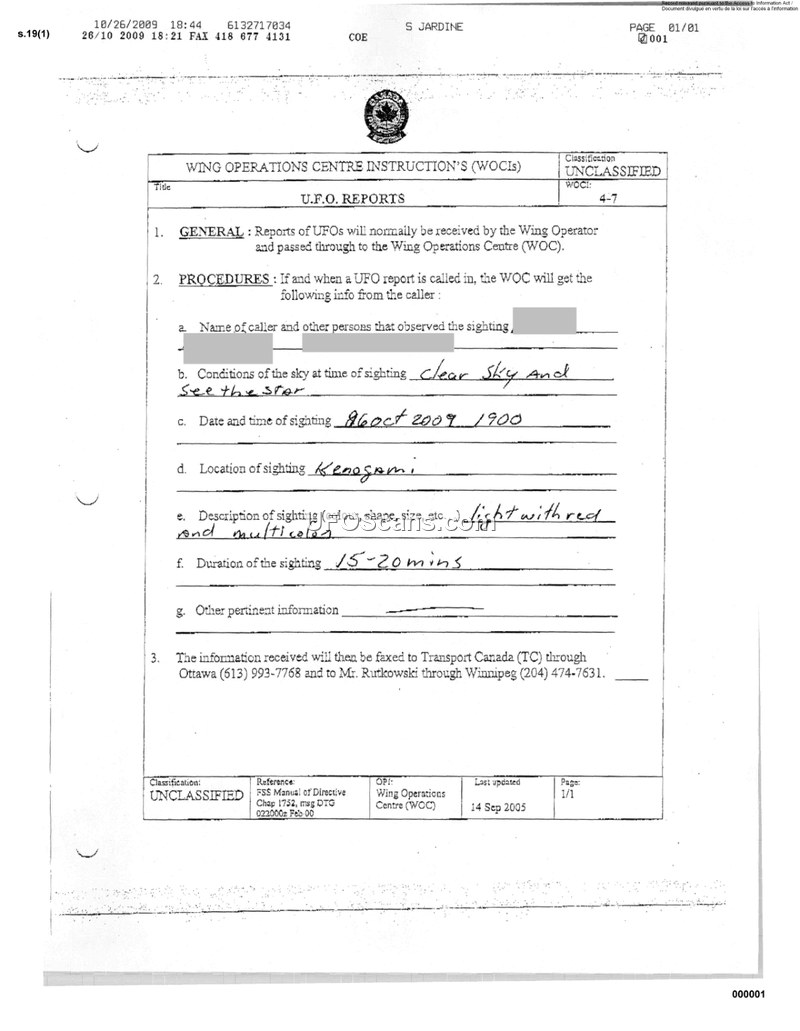 Record released pursuant to the Access to Information Act /
Document divulgué en vertu de la loi sur l'accès à l'information
10/26/2009 18:44 6132717034 S JARDINE PAGE 01/01
s.19(1) 26/10 2009 18:21 FAX 418 677 4131 COE 001
CANADA
WING OPERATIONS CENTRE INSTRUCTION'S (WOCIs)
Classification
UNCLASSIFIED
Title
U.F.O. REPORTS
WOCI:
4-7
1. GENERAL : Reports of UFOs will normally be received by the Wing Operator
and passed through to the Wing Operations Centre (WOC).
2. PROCEDURES : If and when a UFO report is called in, the WOC will get the
following info from the caller :
a. Name of caller and other persons that observed the sighting
b. Conditions of the sky at time of sighting clear sky and
see the star
c. Date and time of sighting 26 oct 2009 1900
d. Location of sighting Kenogami
e. Description of sighting (colour, shape, size, etc...) light with red
and multicolor
UFOScans.com
f. Duration of the sighting 15-20 mins
g. Other pertinent information
3. The information received will then be faxed to Transport Canada (TC) through
Ottawa (613) 993-7768 and to Mr. Rutkowski through Winnipeg (204) 474-7631.
Classification:
UNCLASSIFIED
Reference:
FSS Manual of Directive
Chap 1752, msg DTG
022000z Feb 00
OPI:
Wing Operations
Centre (WOC)
Last updated
14 Sep 2005
Page:
1/1
000001